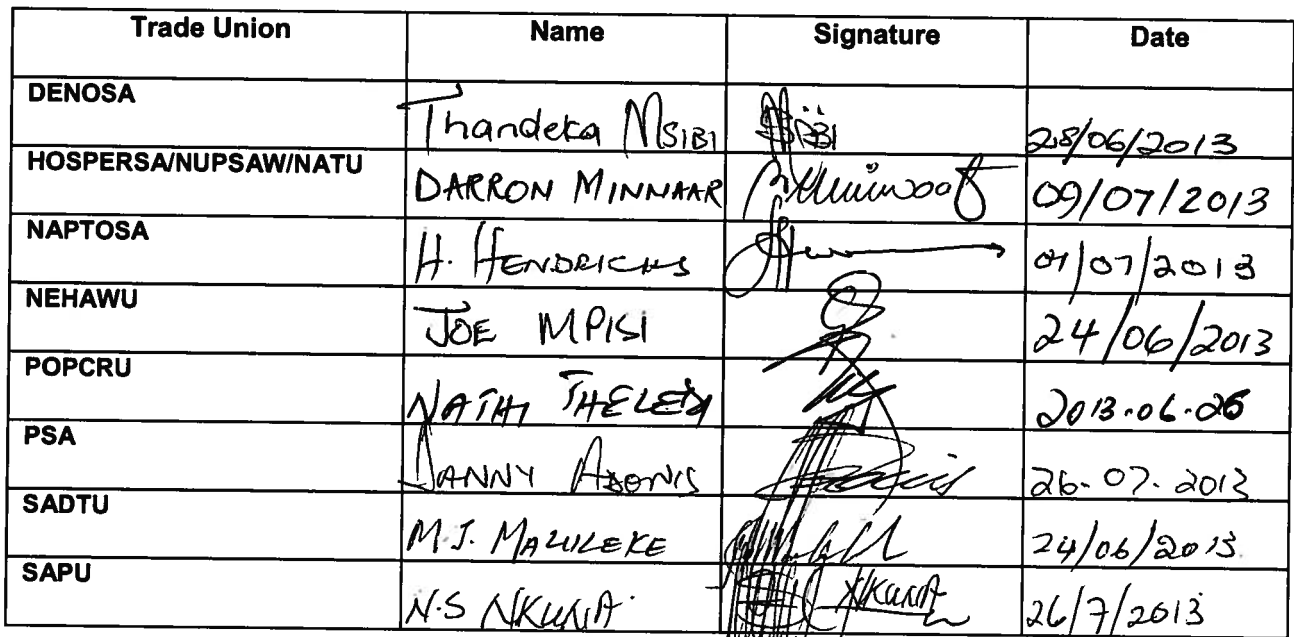 Trade Union Name Signature Date
DENOSA Thandeka MSIBI 28/06/2013
HOSPERSA/NUPSAW/NATU DARRON MINNAAR 09/07/2013
NAPTOSA H. HENDRICKS 01/07/2013
NEHAWU JOE MPISI 24/06/2013
POPCRU NATHI THELEDI 2013.06.26
PSA DANNY ADONIS 26.07.2013
SADTU M.J. MALULEKE 24/06/2013
SAPU N.S NKUNA NKUNA 26/7/2013